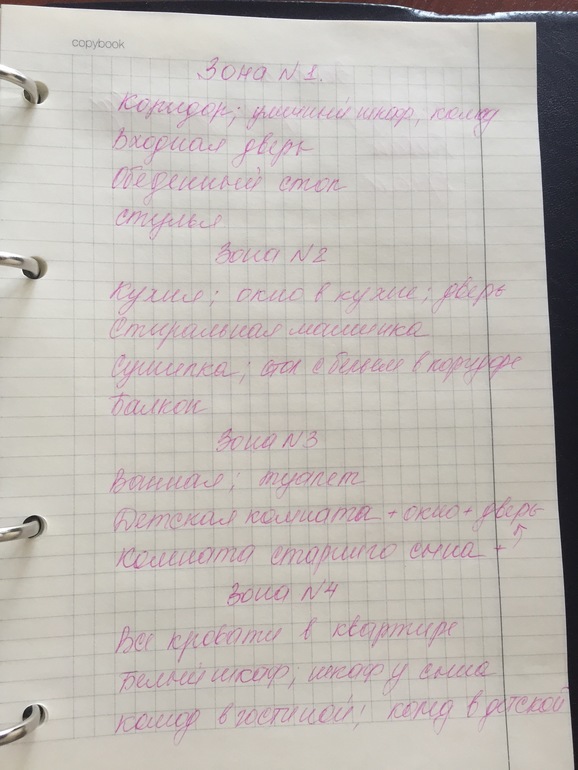 copybook
Зона N 1.
Коридор; уличный шкаф, комод
Входная дверь
Обеденный стол
стулья
Зона N 2
Кухня; окно в кухне; дверь
Стиральная машинка
Сушилка; стол с бельем в коридоре
Балкон
Зона N 3
Ванная; туалет
Детская комната + окно + дверь
Комната старшего сына + ↑
Зона N 4
Все кровати в квартире
Белый шкаф; шкаф у сына
комод в гостиной; комод в детской